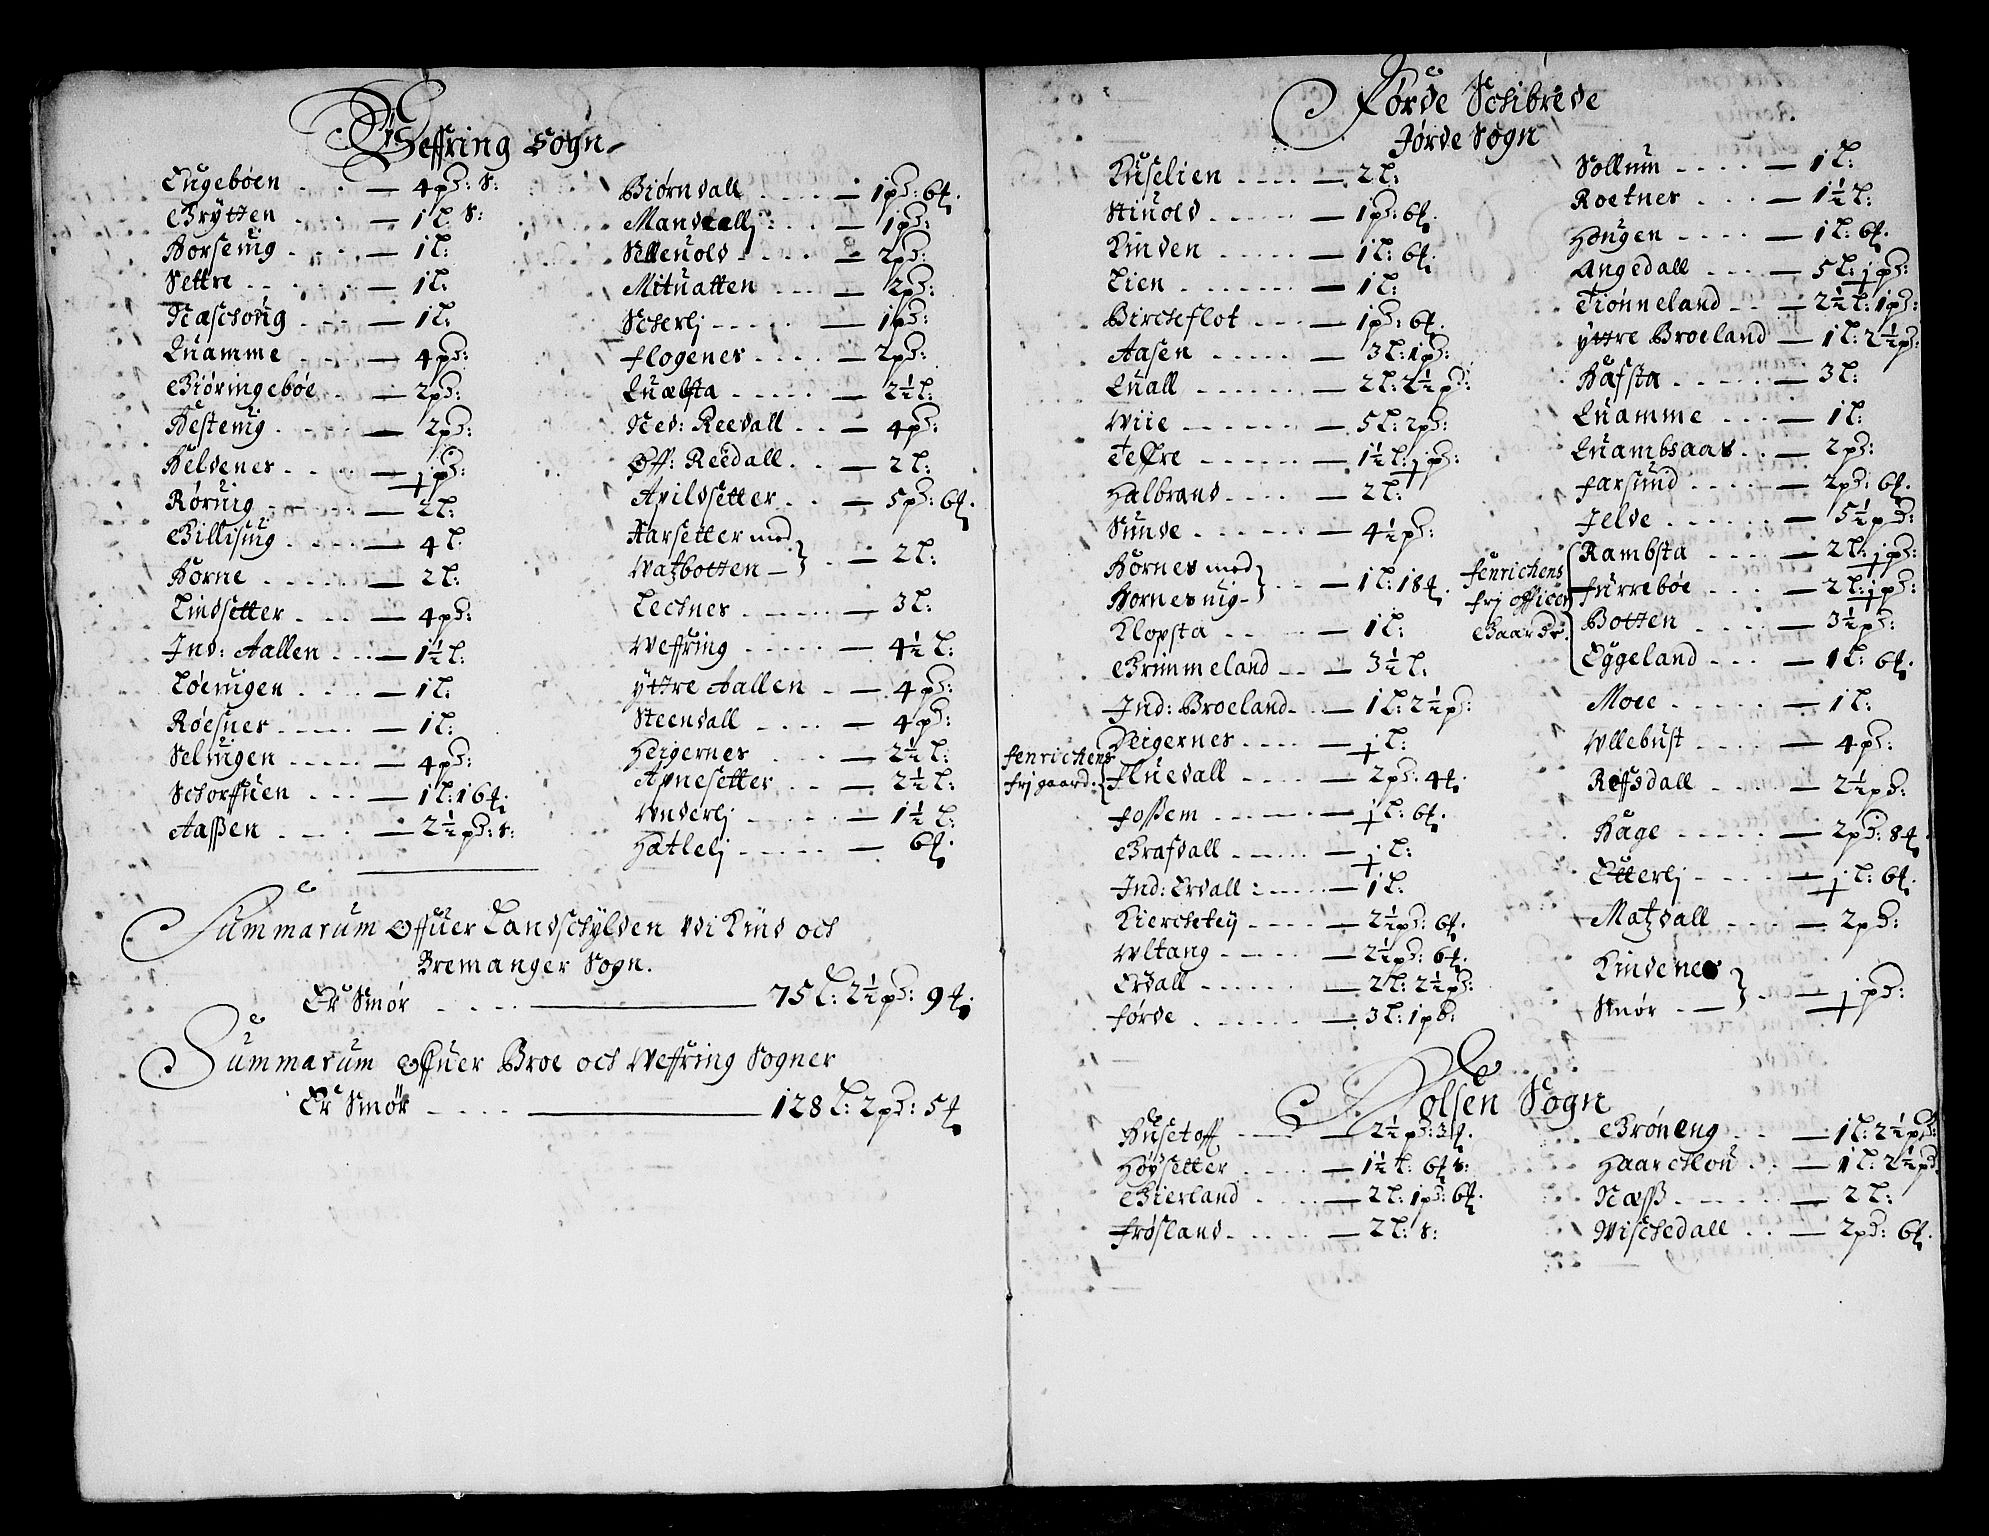 Weffring Sogn
Engebøen - - - 4 pd: s:
Brytten - - - 1 l: s:
Horseuig - - - 1 l:
Settre - - - 1 l:
Næschouig - - - 1 l:
Quamme - - - 4 pd:
Biøringebøe - - - 2 pd:
Hesteuig - - - 2 pd:
Heldener - - - j pd:
Røruig - - - 2 l:
Billisuig - - - 4 l.
Horne - - - 2 l:
Lindsetter - - - 4 pd:
Ind: Aallen - - - 1½ l:
Løeuigen - - - 1 l:
Røesner - - - 1 l:
Seluigen - - - 4 pd:
Schorffuen - - - 1 l: 16 ₰.
Aaßen - - - 2½ pd: s:
Biørndall - - - 1 pd: 6 ₰.
Mandall: - - - 1 pd:
Selleuold - - - 2 pd:
Mituatten - - - 2 pd:
Scherlj - - - 1 pd:
Flogenes - - - 2 pd:
Qualsta - - - 2½ l:
Ned: Reedall - - - 4 pd:
Øff: Reedall - - - 2 l:
Apildsetter - - - 5 pd: 6 ₰.
Aarsetter med
Watzbotten } - - - 2 l:
Lechner - - - 3 l:
Weffring - - - 4½ l:
yttre Aallen - - - 4 pd:
Steendall - - - 4 pd:
Heigernes - - - 2½ l:
Apnesetter - - - 2½ l:
Vnderlj - - - 1½ l:
Hatlelj - - - 6 ₰.
Summarum Offuer Landschylden vdi Kind och
Bremanger Sogn.
Er Smør - - - 75 l: 2½ pd: 9 ₰.
Summarum Offuer Broe och Weffring Sogner
Er Smør - - - 128 l: 2 pd: 5 ₰
Førde Schibrede
Førde Sogn
Kuselien - - - 2 l:
Stiuold - - - 1 pd: 6 ₰.
Linden - - - 1 l: 6 ₰.
Lien - - - 1 l:
Bircheflot - - - 1 pd: 6 ₰.
Aasen - - - 3 l: 1 pd:
Quall - - - 2 l: 2½ pd:
Wiie - - - 5 l: 2 pd:
Tefre - - - 1½ l: j pd:
Halbrand - - - 2 l:
Sunde - - - 4½ pd:
Hornes med
Hornesuig } - - - 1 l: 18 ₰.
Klopsta - - - 1 l:
Brimmeland - - - 3½ l:
Ind: Broeland - - - 1 l: 2½ pd:
Heigernes - - - j l:
Fenrichens
frj gaard: { Fluedall - - - 2 pd: 4 ₰.
Foßem - - - j l: 6 ₰.
Brafdall - - - j l:
Ind: Erdall: - - - 1 l:
Kierchetey - - - 2½ pd: 6 ₰.
Vltang - - - 2½ pd: 6 ₰.
Erdall - - - 2 l: 2½ pd:
Førde - - - 3 l: 1 pd:
Sollum - - - 1 l:
Roetner - - - 1½ l:
Hougen - - - 1 l: 6 ₰.
Angedall - - - 5 l: j pd:
Tiønneland - - - 2½ l: 1 pd:
yttre Broeland - 1 l: 2½ pd:
Hafsta - - - 3 l:
Quamme - - - 1 l:
Quambsaas - - - 2 pd:
Farsund - - - 2 pd: 6 ₰.
Jelde - - - 5½ pd:
Fenrichens
frj officer
Gaarder. {
Rambsta - - - 2 l: j pd:
Furrebøe - - - 2 l: j pd:
Botten - - - 3½ pd:
Eggeland - - - 1 l: 6 ₰.
Moee - - - 1 l:
Vllebust - - - 4 pd:
Refsdall - - - 2½ pd:
Hage - - - 2 pd: 8 ₰.
Etterlj - - - j l: 6 ₰.
Matzdall - - - 2 pd:
Lindenes
Smør } - - - j pd:
Holsen Sogn
Husetoff - - - 2½ pd: 3 ₰.
Høysetter - - - 1½ l: 6 ₰ s:
Bierland - - - 2 l: 1 pd: 6 ₰.
Frøsland - - - 2 l: s:
Brøneng - - - 1 l: 2½ pd:
Haarchlou - - - 1 l: 2½ pd.
Næß - - - 2 l:
Wischedall - - - 2 pd: 6 ₰.